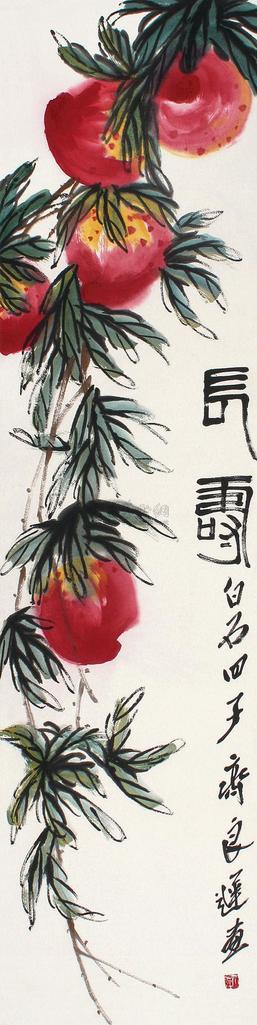 長壽
白石四子齊良遲畫